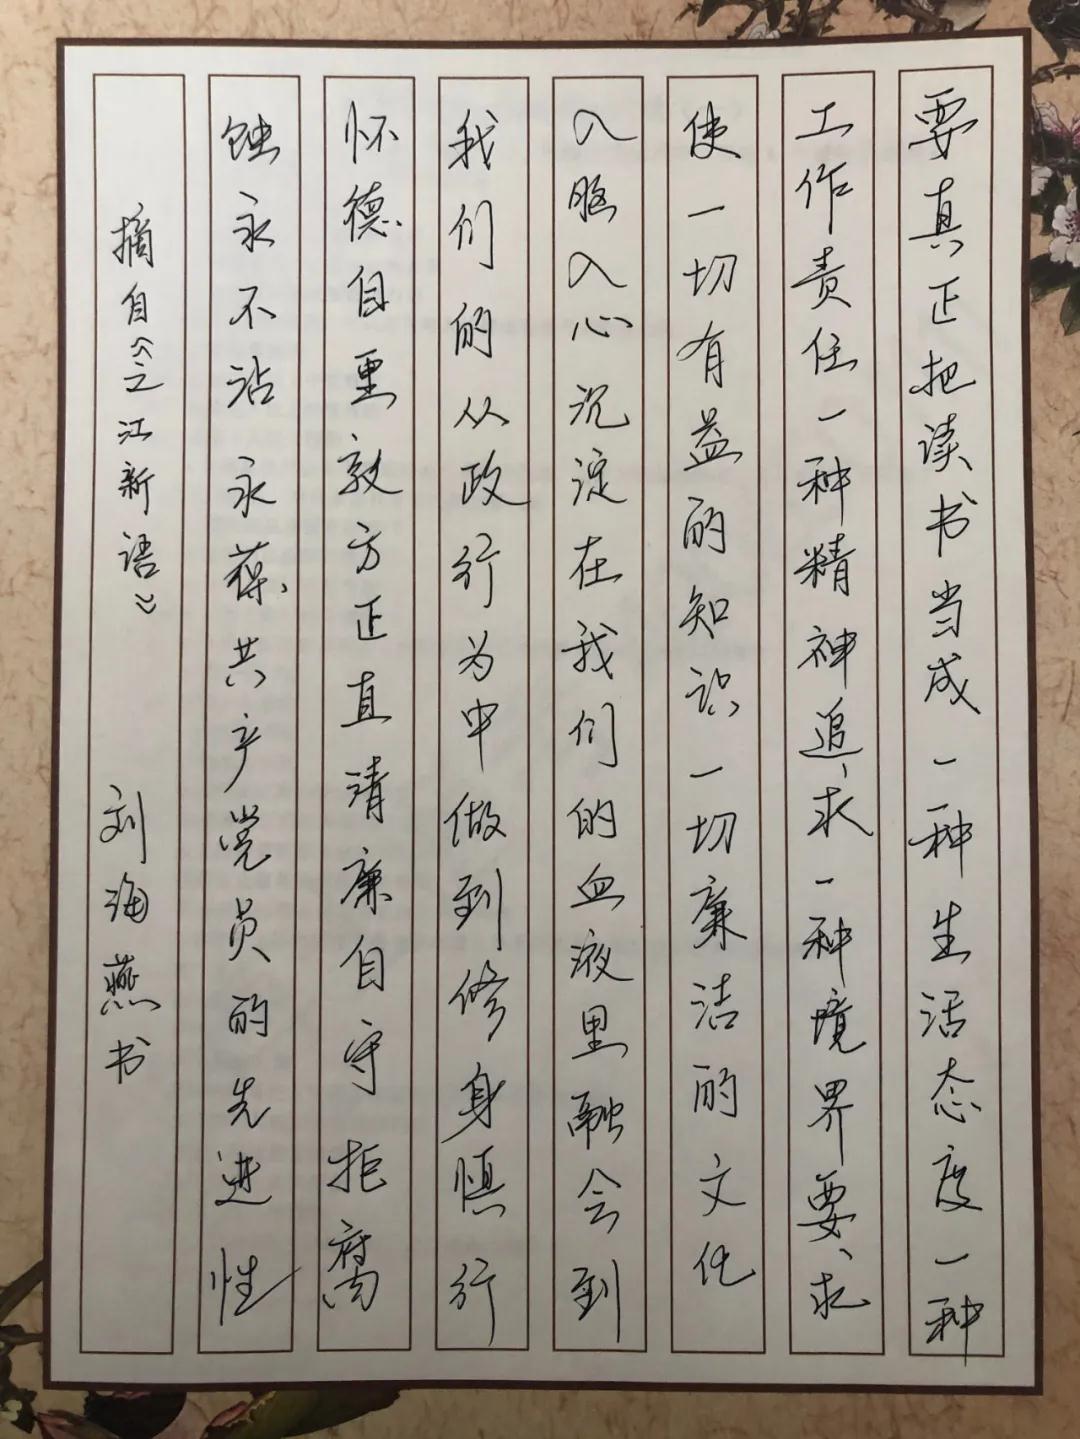 要真正把读书当成一种生活态度一种
工作责任一种精神追求一种境界要求
使一切有益的知识一切廉洁的文化
入脑入心沉淀在我们的血液里融会到
我们的从政行为中做到修身慎行
怀德自重敦方正直清廉自守拒腐
蚀永不沾永葆共产党员的先进性
摘自《之江新语》 刘海燕书